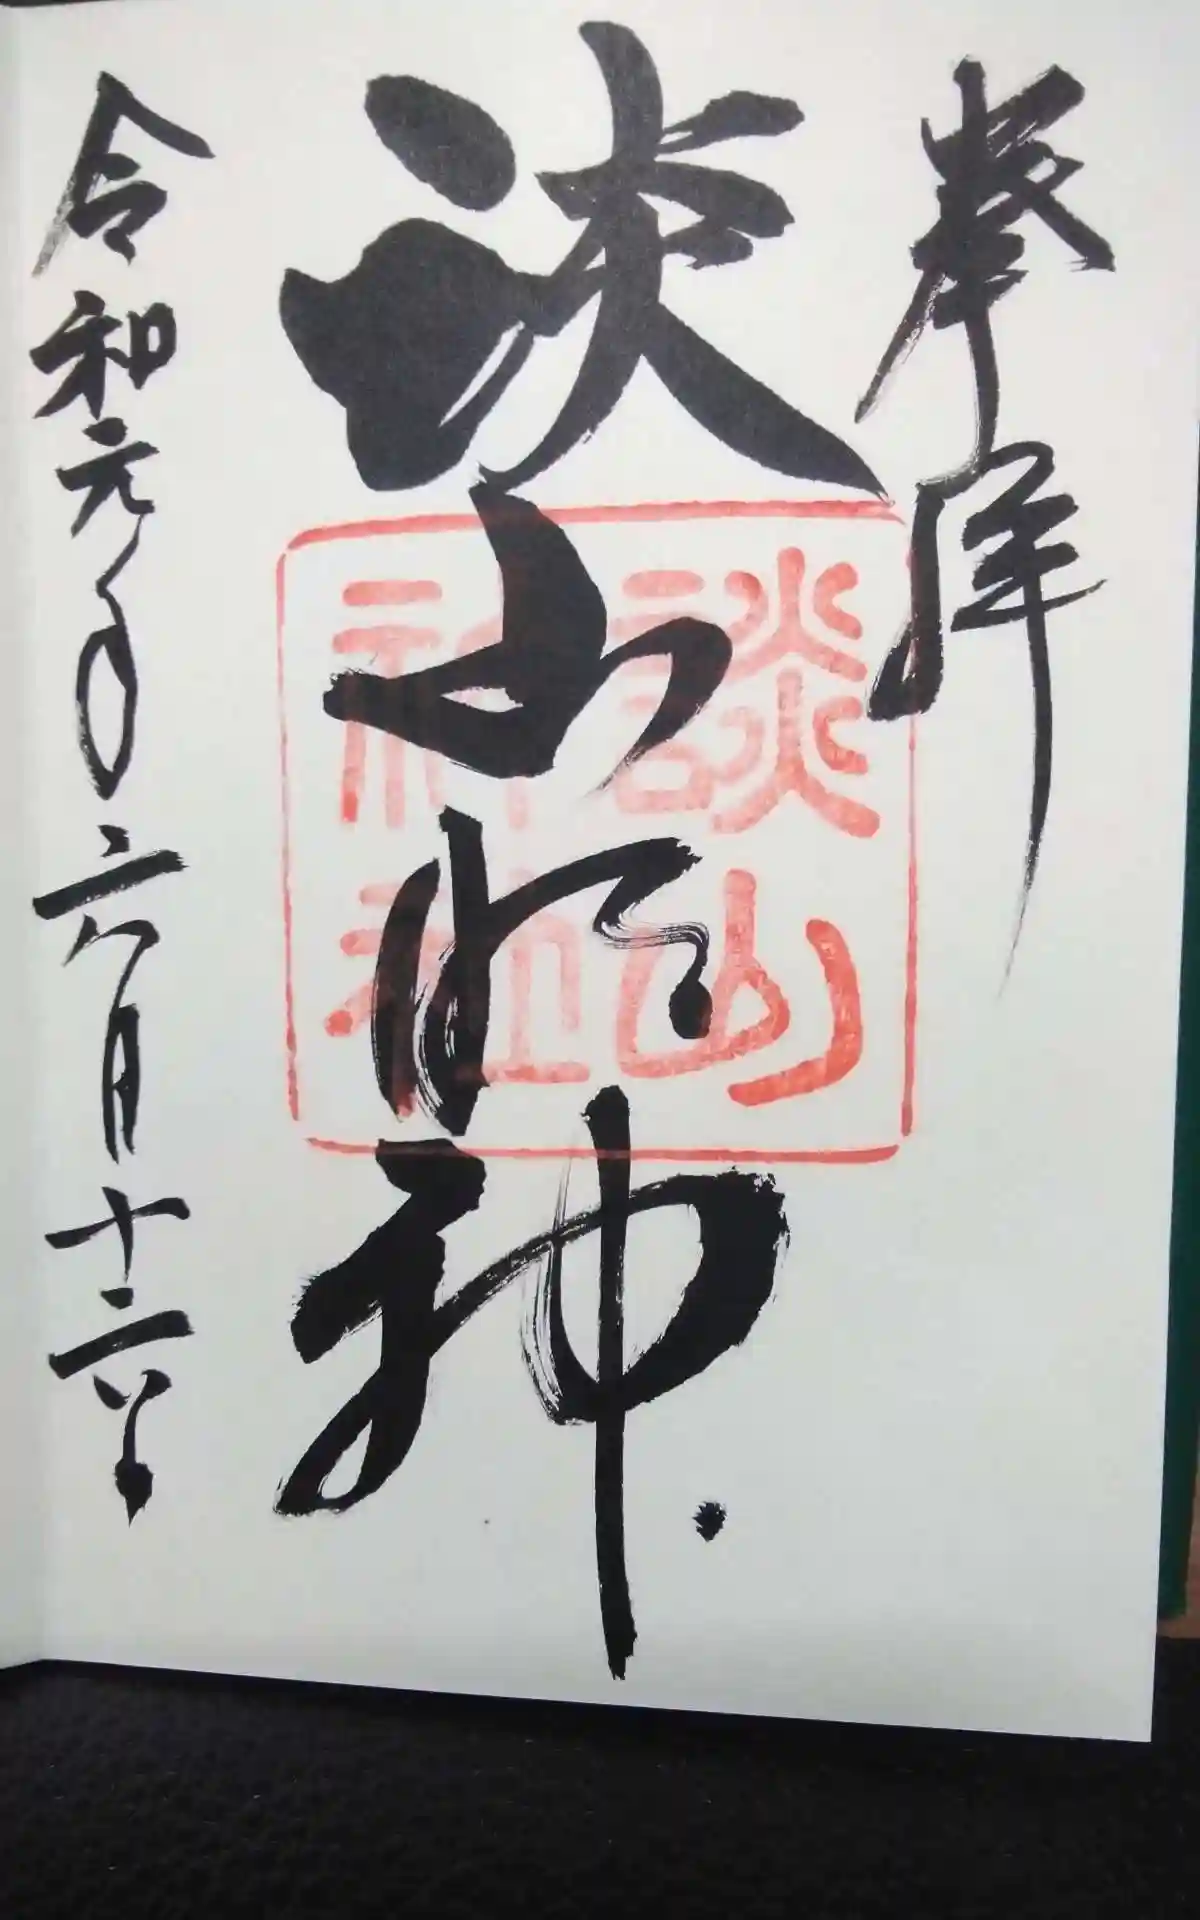 奉拝
談山明神
談山
神社
令和元年六月十六日